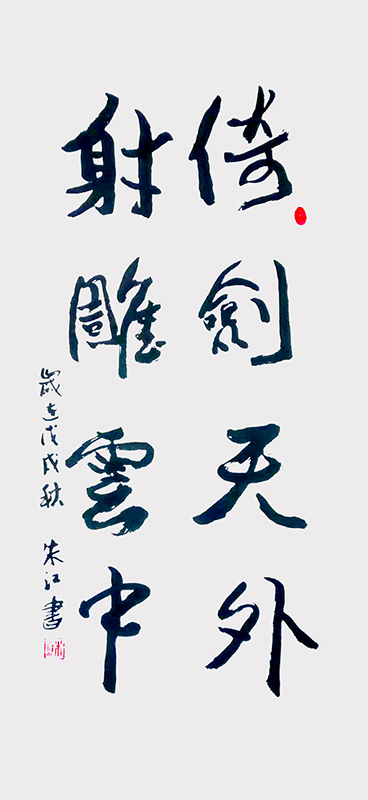 倚劍天外
射雕雲中
歲在戊戌秋 朱江書